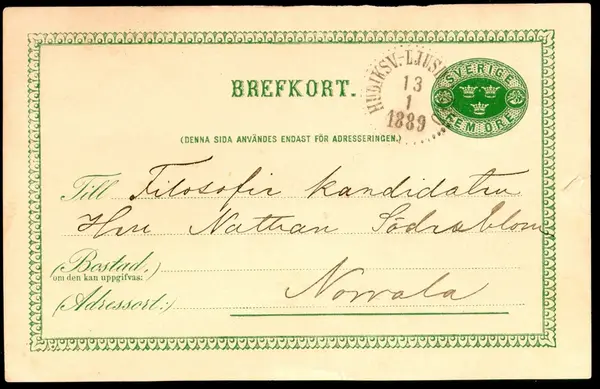 BREFKORT.
HUDIKSV.-LJUSD
13
1
1889
SVERIGE
FEM ÖRE
(DENNA SIDA ANVÄNDES ENDAST FÖR ADRESSERINGEN.)
Till Filosofie kandidaten
Herr Nathan Söderblom
(Bostad,)
om den kan uppgifvas:
(Adressort:) Norrala